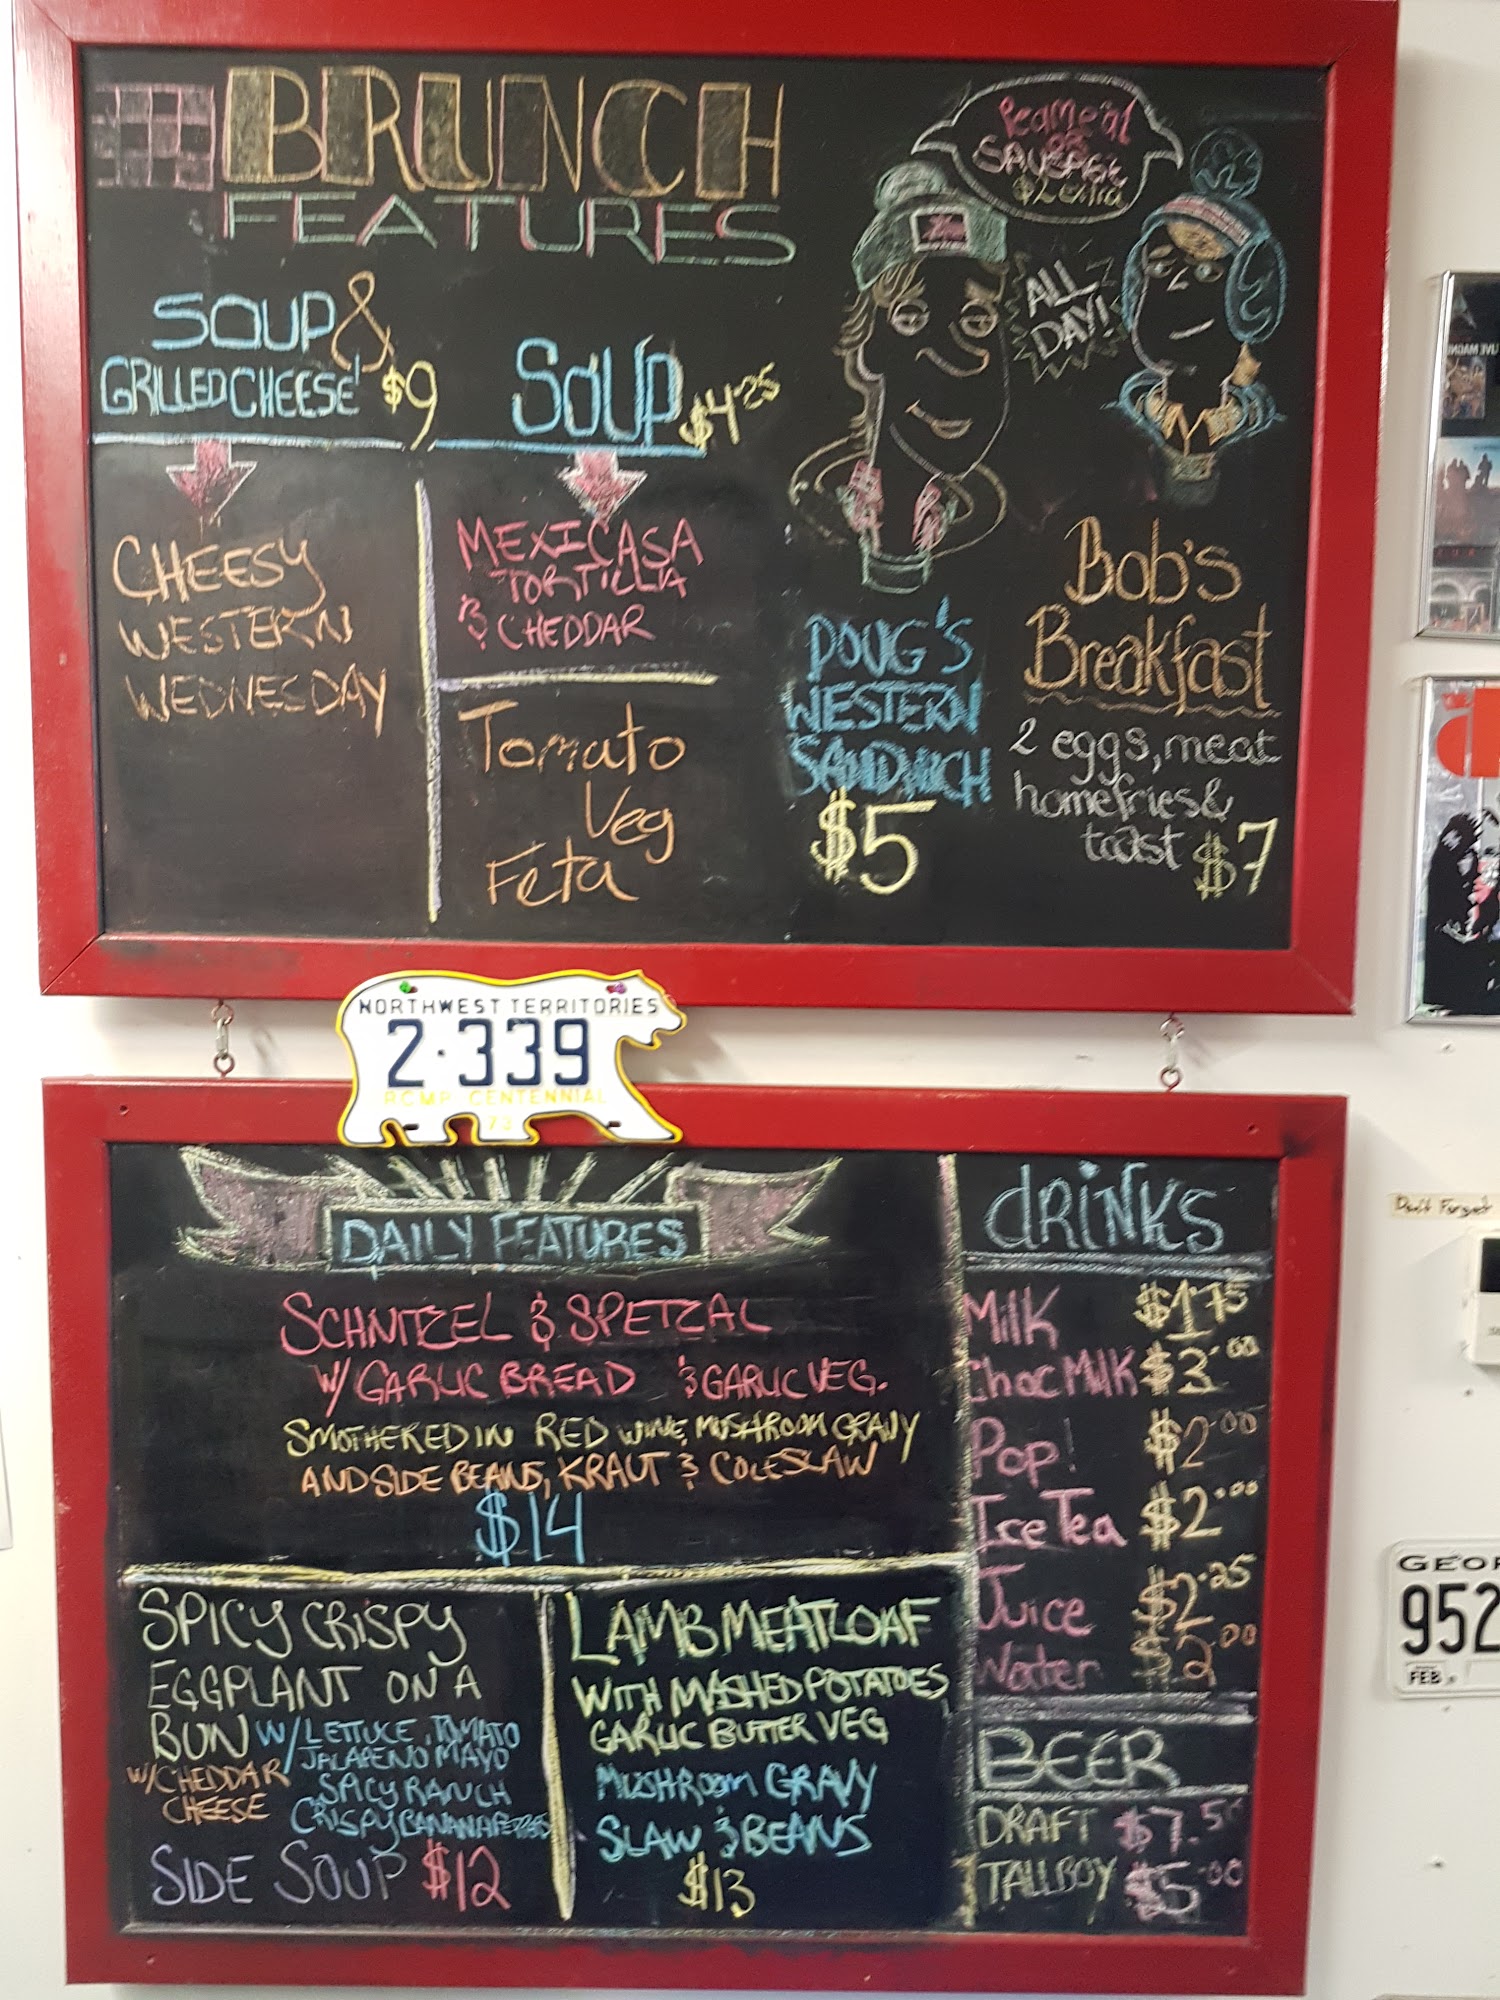 BRUNCH
FEATURES
Peameal
OR
SAUSAGE
$2 extra
ALL
DAY!
SOUP &
GRILLED CHEESE $9
SOUP $4.25
CHEESY
WESTERN
WEDNESDAY
MEXICASA
TORTILLA
& CHEDDAR
Tomato
Veg
Feta
DOUG'S
WESTERN
SANDWICH
$5
Bob's
Breakfast
2 eggs, meat
homefries &
toast $7
NORTHWEST TERRITORIES
2·339
RCMP CENTENNIAL
73
DAILY FEATURES
SCHNITZEL & SPETZAL
W/ GARLIC BREAD & GARLIC VEG.
SMOTHERED IN RED WINE, MUSHROOM GRAVY
AND SIDE BEANS, KRAUT & COLESLAW
$14
SPICY CRISPY
EGGPLANT ON A
BUN W/ LETTUCE, TOMATO
JALAPENO MAYO
W/CHEDDAR SPICY RANCH
CHEESE CRISPY BANANA
SIDE SOUP $12
LAMB MEATLOAF
WITH MASHED POTATOES,
GARLIC BUTTER VEG
MUSHROOM GRAVY
SLAW & BEANS
$13
DRINKS
Milk $1.75
Choc Milk $3.00
Pop! $2.00
Ice Tea $2.00
Juice $2.25
Water $2.00
BEER
DRAFT $7.50
TALLBOY $5.00
Don't Forget
GEOR
952
FEB.